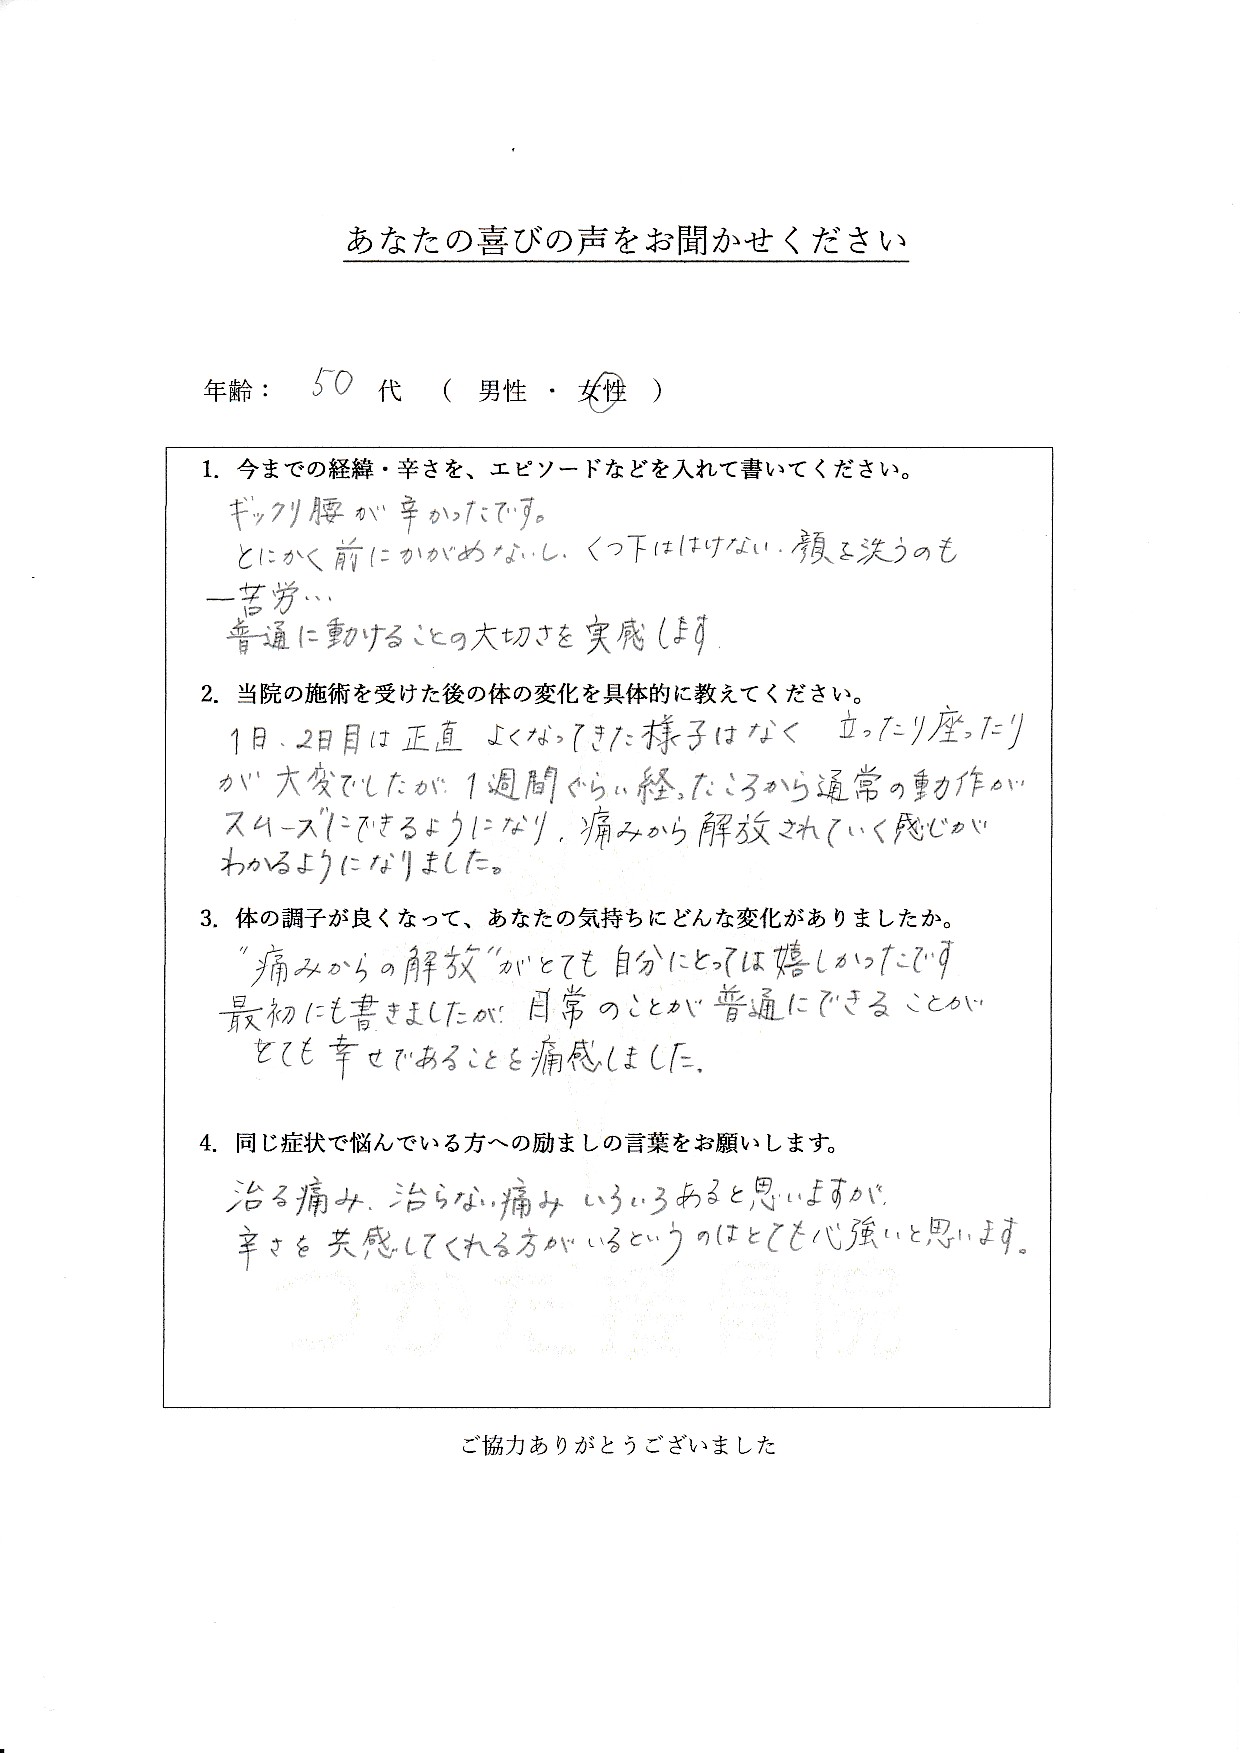 あなたの喜びの声をお聞かせください
年齢： 50 代 （ 男性 ・ 女性 ）
1. 今までの経緯・辛さを、エピソードなどを入れて書いてください。
ギックリ腰が辛かったです。
とにかく前にかがめないし、くつ下ははけない、顔を洗うのも
一苦労…
普通に動けることの大切さを実感します
2. 当院の施術を受けた後の体の変化を具体的に教えてください。
1日、2日目は正直 よくなってきた様子はなく 立ったり座ったり
が大変でしたが、1週間ぐらい経ったころから通常の動作が
スムーズにできるようになり、痛みから解放されていく感じが
わかるようになりました。
3. 体の調子が良くなって、あなたの気持ちにどんな変化がありましたか。
"痛みからの解放"がとても自分にとっては嬉しかったです
最初にも書きましたが、日常のことが普通にできることが
とても幸せであることを痛感しました。
4. 同じ症状で悩んでいる方への励ましの言葉をお願いします。
治る痛み、治らない痛み いろいろあると思いますが、
辛さを共感してくれる方がいるというのはとても心強いと思います。
ご協力ありがとうございました